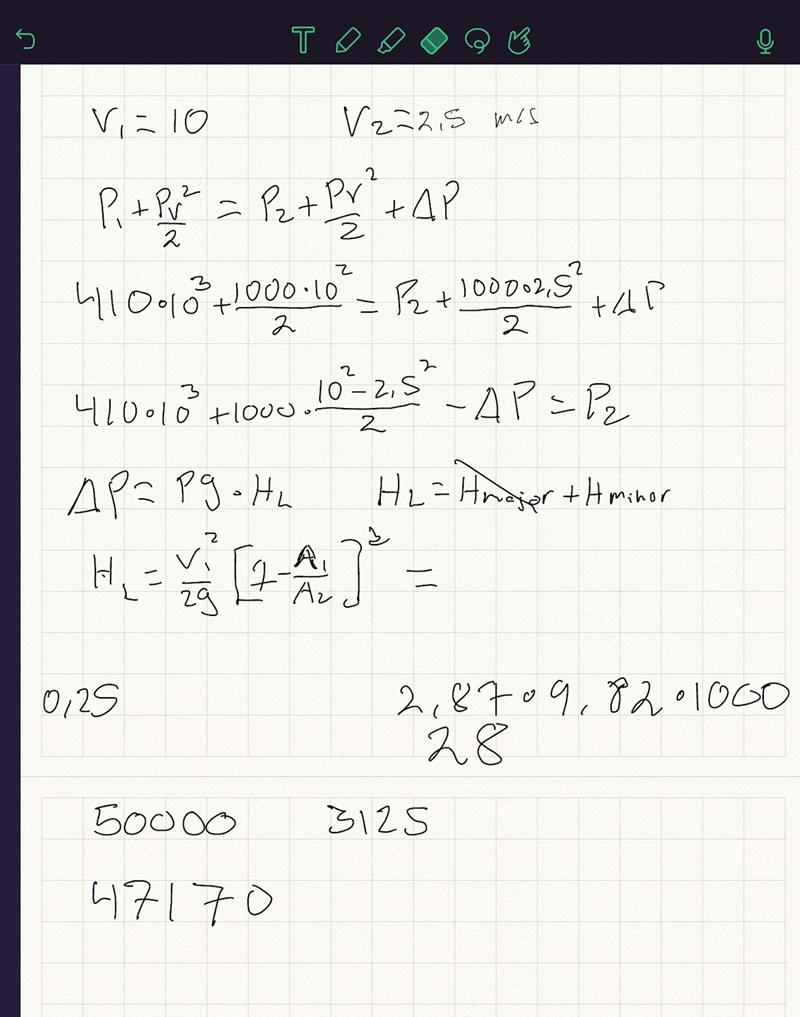 T
V₁ = 10 V₂ = 2,5 m/s
P₁ + Pv²/2 = P₂ + Pv²/2 + ΔP
410·10³ + 1000·10²/2 = P₂ + 1000·2,5²/2 + ΔP
410·10³ + 1000·(10² - 2,5²)/2 - ΔP = P₂
ΔP = Pg·H_L H_L = Hmajor + Hminor
H_L = V₁²/2g [1 - A₁/A₂]² =
0,25 2,87·9,82·1000
28
50000 3125
47170